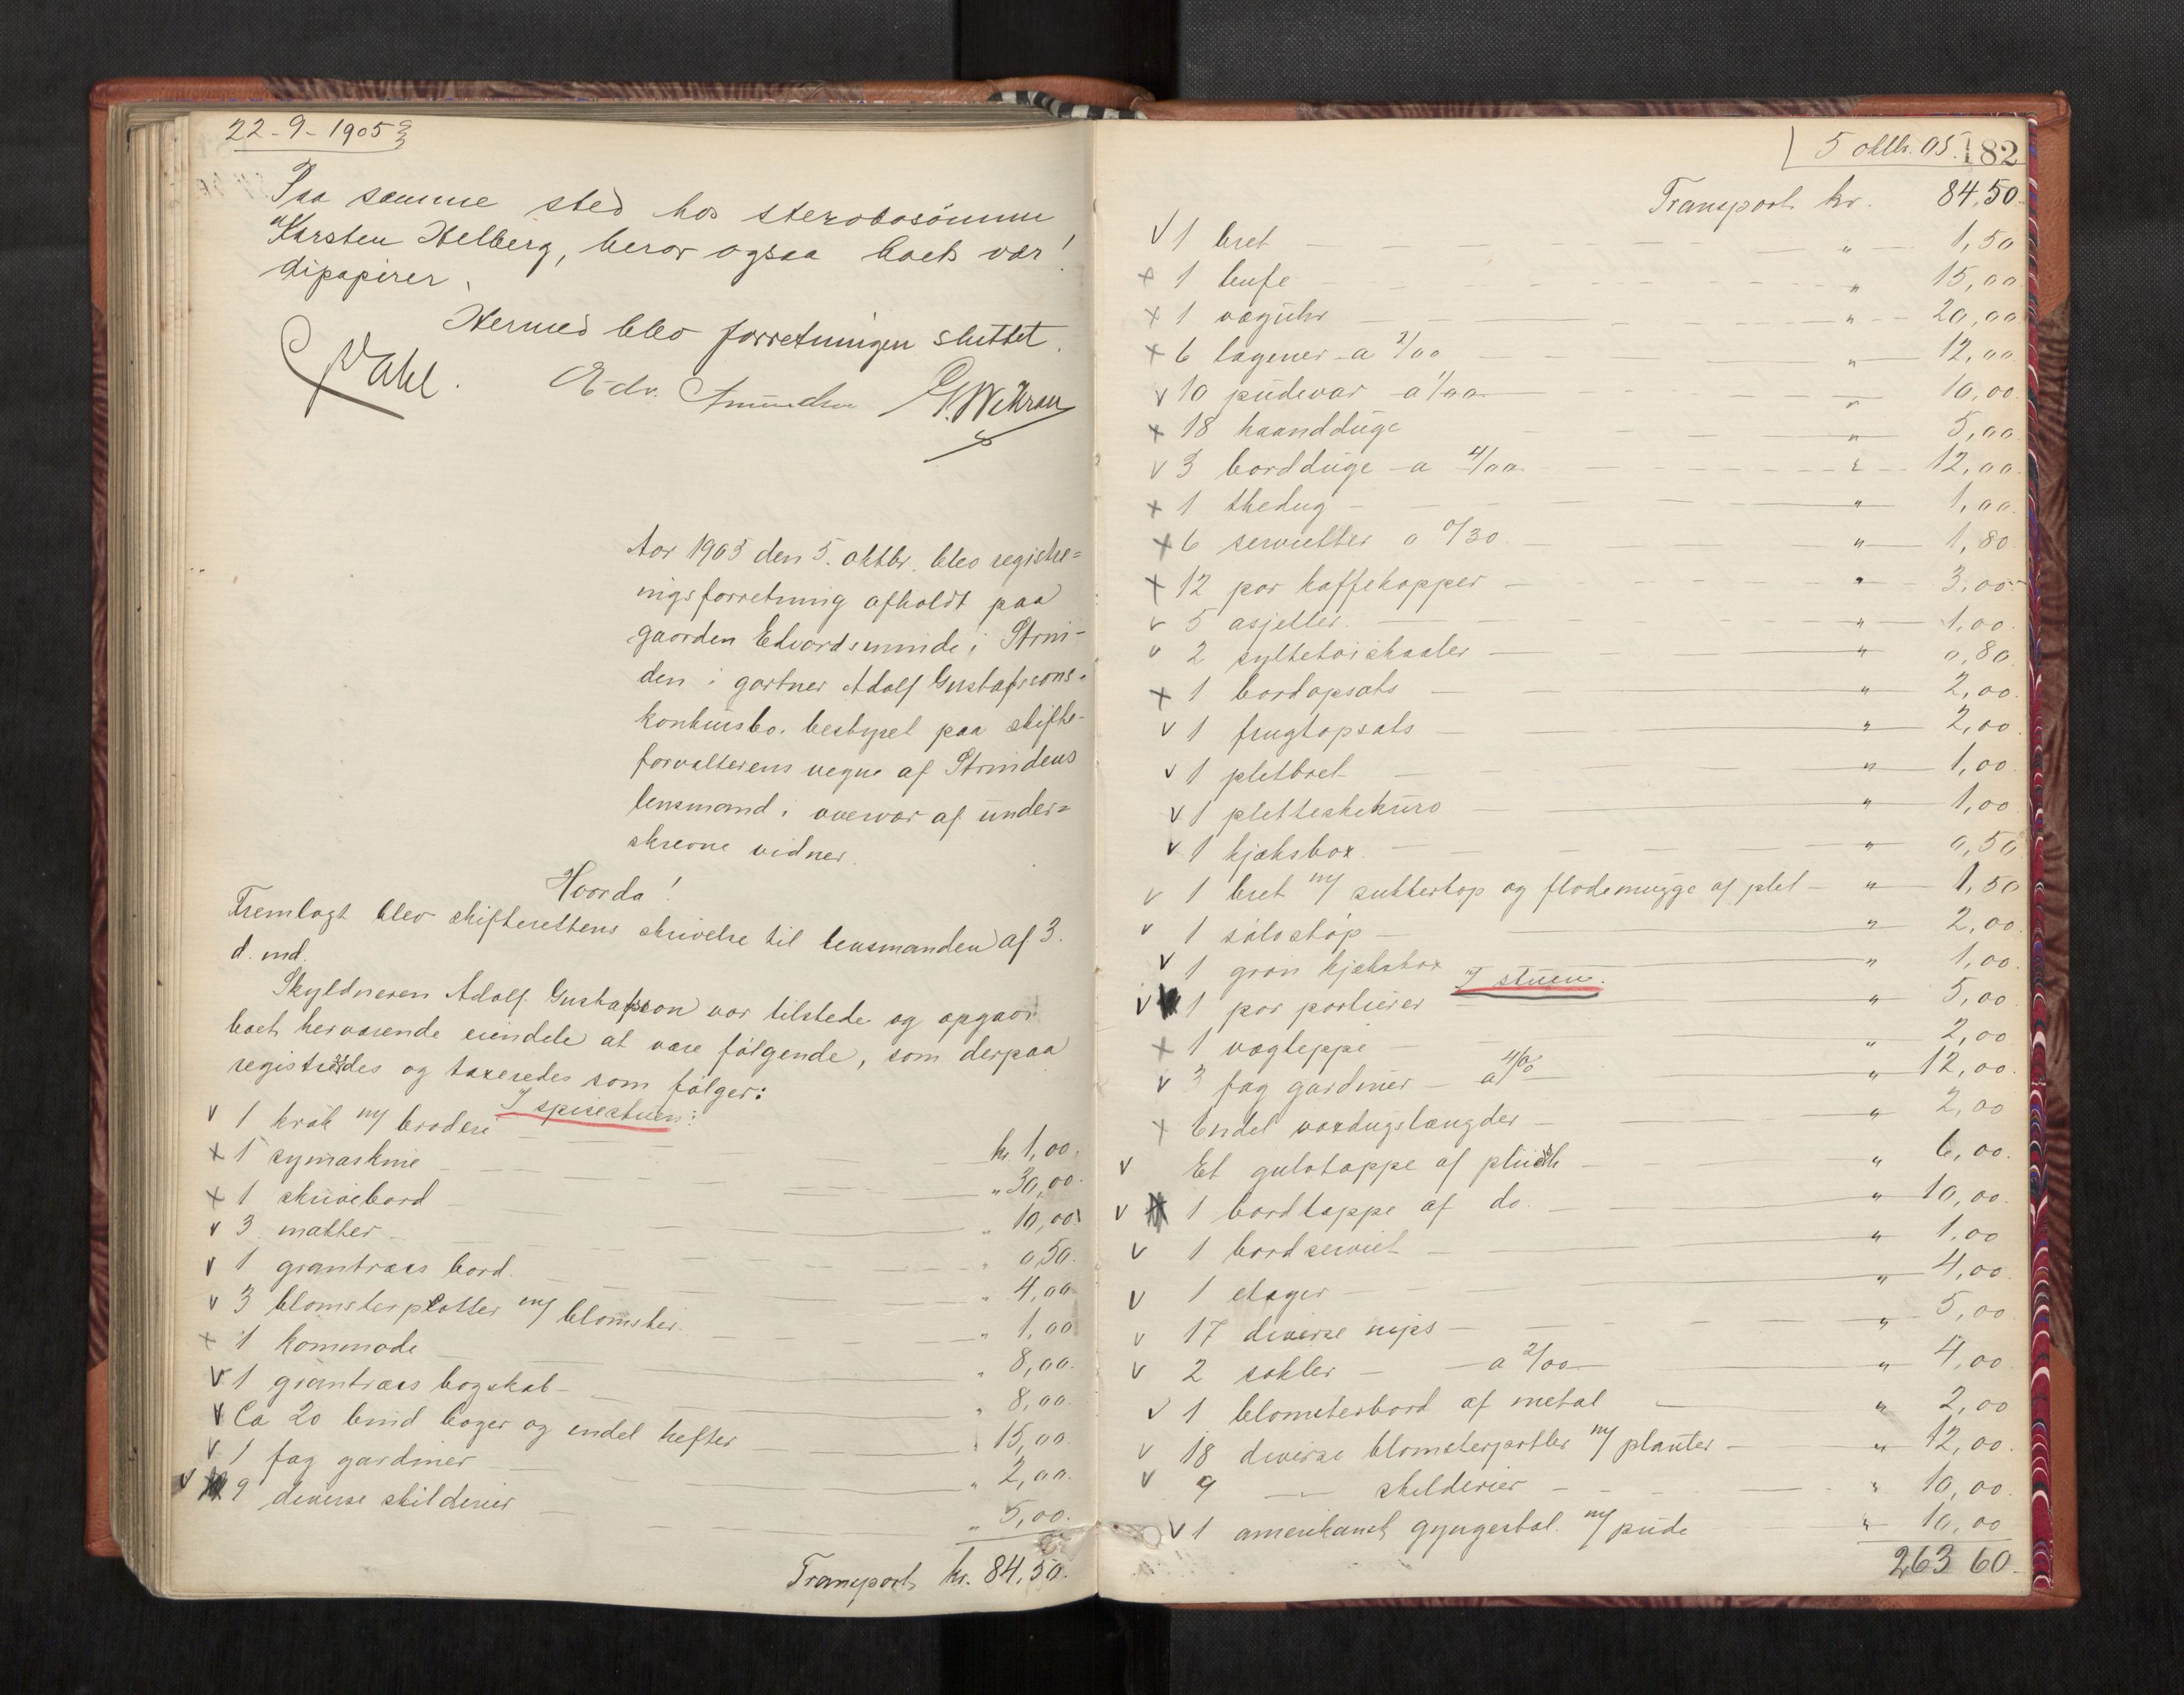 22-9-1905
Paa samme sted hos sterbosönnen
Karsten Helberg, beror ogsaa boets vær!
dipapirer.
Hermed blev forretningen sluttet.
Wahl. Edv. Amundsen
Aar 1905 den 5. oktbr. blev registre=
ringsforretning afholdt paa
gaarden Edvardsminde i Strin-
den i gartner Adolf Gustafssons
konkursbo. bestyret paa skifte-
forvalterens vegne af Strindens
lensmand i overvær af under=
skrevne vidner.
Hvorda!
Fremlagt blev skifterettens skrivelse til lensmanden af 3.
d. md.
Skyldneren Adolf Gustafsson var tilstede og opgav
boets herværende eiendele at være følgende, som derpaa
registreredes og taxeredes som følger:
I spisestuen:
v 1 krak m/ broderi kr. 1,00.
x 1 symaskine " 30,00.
x 1 skrivebord " 10,00
v 3 matter " 0,50.
v 1 grantræes bord. " 4,00
v 3 blomsterpotter m/ blomster. " 1,00
x 1 kommode " 8,00.
v 1 grantræes bogskab " 8,00.
v Ca 20 bind bøger og endel hefter " 15,00.
v 1 fag gardiner " 2,00.
v 9 diverse skilderier " 5,00.
Transport kr. 84,50.
5 oktbr. 05. 182
Transport kr. 84,50.
v 1 bret " 1,50
x 1 bufe " 15,00
x 1 væguhr " 20,00
x 6 lagener a 2/00 " 12,00.
v 10 pudevar a 1/00 " 10,00.
x 18 haandduge " 5,00.
v 3 bordduge a 4/00. " 12,00.
x 1 thedug " 1,00.
x 6 servietter a 0/30 " 1,80
x 12 par kaffekopper " 3,00
v 5 asjetter. " 1,00.
v 2 syltetøiskaaler " 0,80.
x 1 bordopsats " 2,00.
v 1 frugtopsats " 2,00.
v 1 pletbret " 1,00.
v 1 pletteskekurv " 1,00
v 1 kjæksbox. " 0,50
v 1 bret m/ sukkerkop og flødemugge af plet " 1,50
v 1 sølvstøp " 2,00.
v 1 grøn kjæksbox " 1,00.
I stuen.
v 1 par portierer " 5,00
x 1 vægteppe " 2,00
v 3 fag gardiner a 4/00 " 12,00.
x Endel voxdugslængder " 2,00
v Et gulvtæppe af pludsh " 6,00.
v 1 bordtæppe af do. " 10,00.
v 1 bordserviet " 1,00
v 1 etager " 4,00
v 17 diverse nips " 5,00
v 2 sokler a 2/00 " 4,00
v 1 blomsterbord af metal " 2,00
v 18 diverse blomsterpotter m/ planter " 12,00.
v 9 —"— skilderier " 10,00.
v 1 amerikansk gyngestol. m/ pude " 10,00
263 60